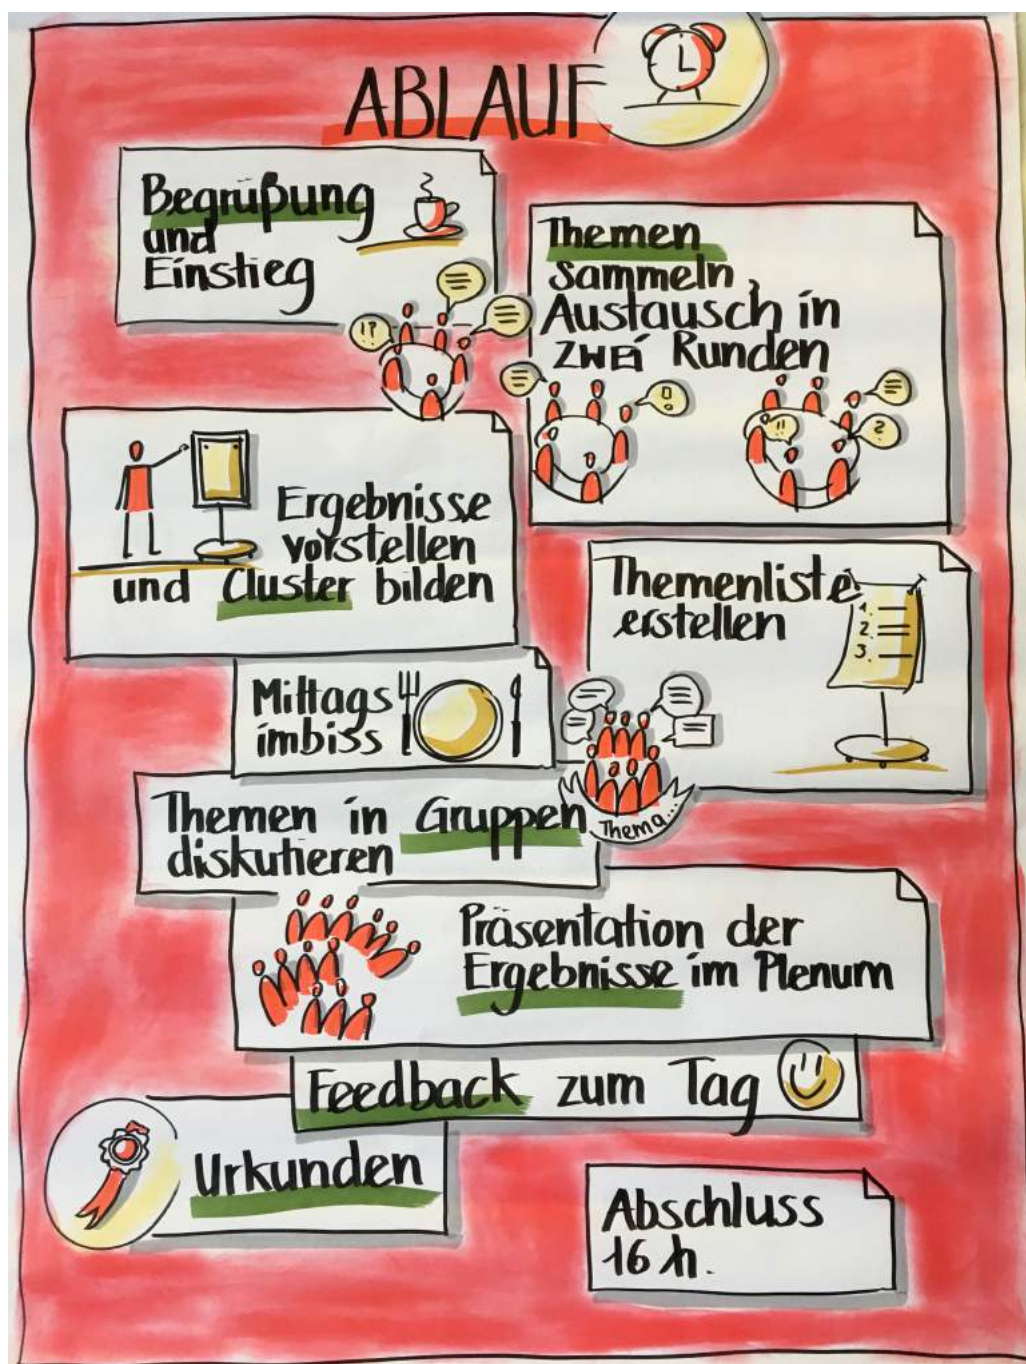 ABLAUF
Begrüßung
und
Einstieg
Themen
sammeln,
Austausch in
ZWEi Runden
Ergebnisse
vorstellen
und Cluster bilden
Themenliste
erstellen
1.
2.
3.
Mittags
imbiss
Themen in Gruppen
diskutieren
Thema...
Präsentation der
Ergebnisse im Plenum
Feedback zum Tag
Urkunden
Abschluss
16 h.